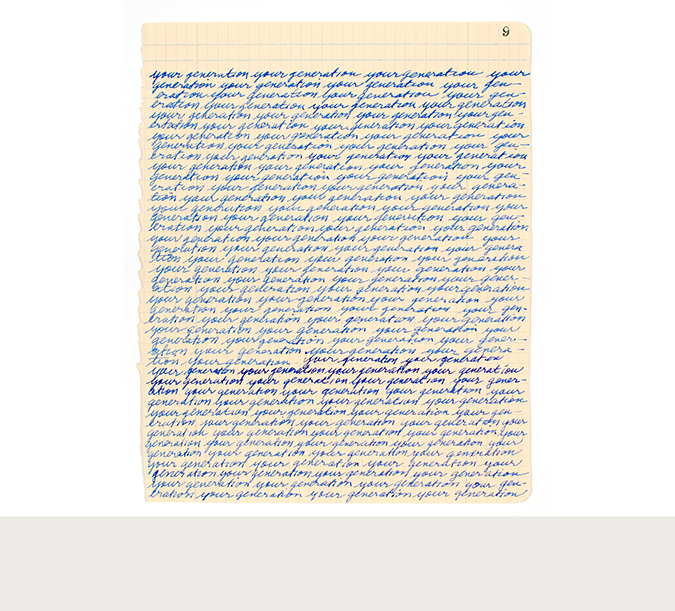 9
your generation your generation your generation your
generation your generation your generation your gen-
eration your generation your generation your gen-
eration your generation your generation your generation
your generation your generation your generation your gen-
eration your generation your generation your generation
your generation your generation your generation your
generation your generation your generation your gen-
eration your generation your generation your generation
your generation your generation your generation your
generation your generation your generation your gen-
eration your generation your generation your genera-
tion your generation your generation your generation
your generation your generation your generation your
generation your generation your generation your gen-
eration your generation your generation your generation
your generation your generation your generation your
generation your generation your generation your genera
tion your generation your generation your generation
your generation your generation your generation your
generation your generation your generation your gener-
ation your generation your generation your generation
your generation your generation your generation your
generation your generation your generation your gen-
eration your generation your generation your generation
your generation your generation your generation your
generation your generation your generation your gener-
ation your generation your generation your genera-
tion your generation your generation your generation
your generation your generation your generation your generation
your generation your generation your generation your gener-
ation your generation your generation your generation your
generation your generation your generation your generation
your generation your generation your generation your gen
eration your generation your generation your generation your
generation your generation your generation your generation your
generation your generation your generation your generation your
generation your generation your generation your generation
your generation your generation your generation your
generation your generation your generation your generation
your generation your generation your generation your gen-
eration your generation your generation your generation